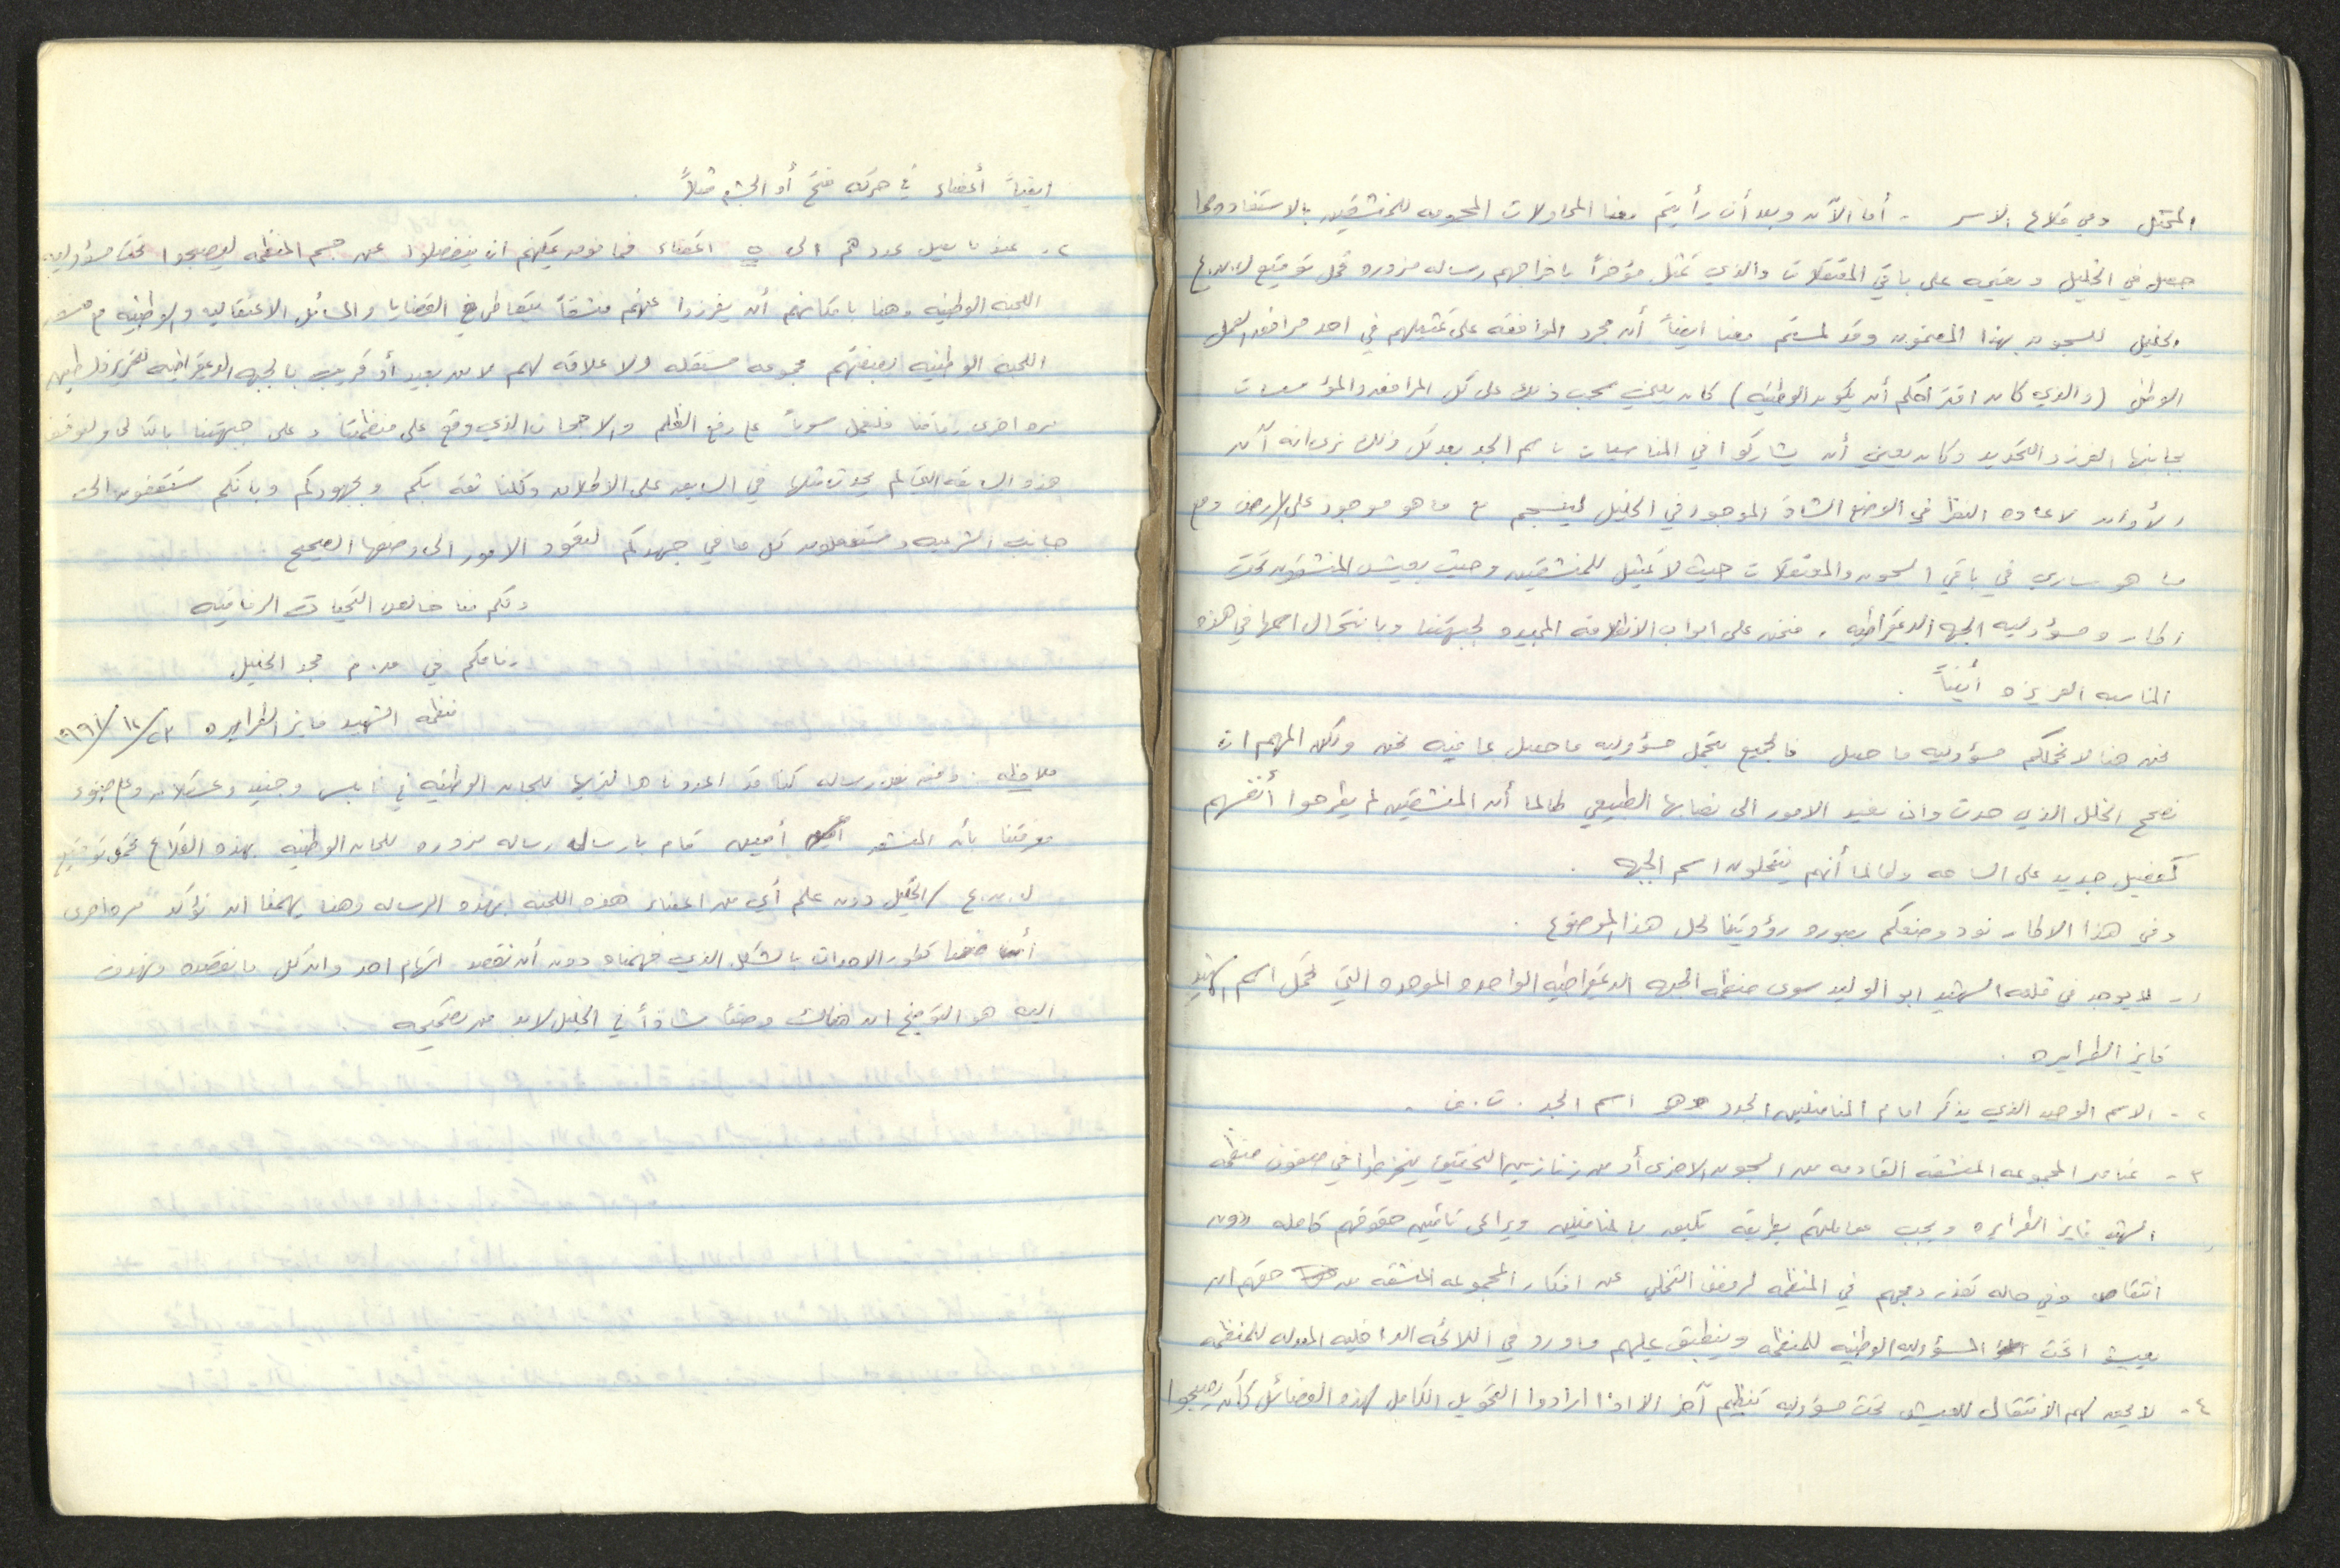 المحتل وفي قلاع الاسر - أما الآن وبعد أن رأيتم معنا المحاولات المحمومه للمنشقين بالاستفاده مما
حصل في الخليل وتعميمه على باقي المعتقلات والذي تمثل مؤخراً باخراجهم رساله مزوره تحمل توقيع ل.ن.ع
الخليل للسجون بهذا المضمون وقد لمستم معنا ايضاً أن مجرد الموافقه على تمثيلهم في احد مرافق العمل
الوطني (والذي كان اقتراحكم أن يكون الوطنيه) كان يعني سحب ذلك على كل المرافق والمؤسسات
بجانبها الفرز والتحديد وكان يعني أن يشاركوا في المناسبات باسم الجد بعد كل ذلك نرى انه آن
الأوان لاعاده النظر في الوضع الشاذ الموجود في الخليل لينسجم مع ما هو موجود على الارض ومع
ما هو ساري في باقي السجون والمعتقلات حيث لا تمثيل للمنشقين وحيث يعيش المنشقون تحت
اطار ومسؤوليه الجبهه الدمقراطيه . فنحن على ابواب الانطلاقه المجيده لجبهتنا وبانتحال اسمها في هذه
المناسبه العزيزه أيضاً .
نحن هنا لا نحملكم مسؤوليه ما حصل فالجميع يتحمل مسؤوليه ما حصل بما فيه نحن ولكن المهم ان
نصحح الخلل الذي حدث وان نعيد الامور الى نصابها الطبيعي طالما أن المنشقين لم يطرحوا أنفسهم
كفصيل جديد على الساحه وطالما أنهم ينتحلون اسم الجبهه .
وفي هذا الاطار نود وضعكم بصوره رؤويتنا لحل هذا الموضوع .
١- لا يوجد في قلعه الشهيد ابو الوليد سوى منظمه الجبهه الدمقراطيه الواحده الموحده التي تحمل اسم الشهيد
فايز الطرايره .
٢- الاسم الوحيد الذي يذكر امام المناضلين الجدد هو اسم الجد . ت . ف .
٣- عناصر المجموعه المنشقه القادمه من السجون الاخرى أو من زنازين التحقيق ينخرطوا في صفوف منظمه
الشهيد فايز الطرايره ويجب معاملتهم بطريقه تليق بالمناضلين ويراعى تأمين حقوقهم كامله دون
انتقاص وفي حاله تعذر دمجهم في المنظمه لرفض التخلي عن افكار المجموعه المنشقه من حقهم ان
يعيشوا تحت المسؤوليه الوطنيه للمنظمه وينطبق عليهم ما ورد في اللائحه الداخليه المعدله للمنظمه
٤- لا يحق لهم الانتقال للعيش تحت مسؤوليه تنظيم آخر الا اذا ارادوا التحويل الكامل لهذه الفصائل كأن يصبحوا
ايضاً أعضاء في حركه فتح أو الجش مثلاً .
٢- عندما يصل عددهم الى ٥ اعضاء فما فوق يمكنهم ان ينفصلوا عن جسم المنظمه ليصبحوا تحت مسؤوليه
اللجنه الوطنيه وهنا بامكانهم أن يفرزوا عنهم منسقاً يتعاطى القضايا والمسائل الاعتقاليه والوطنيه مع
اللجنه الوطنيه بصفتهم مجموعه مستقله ولا علاقه لهم لا من بعيد أو قريب بالجبهه الدمقراطيه لتحرير فلسطين
مره اخرى رفاقنا فلنعمل سوياً على رفع الظلم والاجحاف الذي وقع على منظمتنا وعلى جبهتنا بالتالي ولنوقف
هذه السابقه التي لم يحدث مثلها في السابق على الاطلاق وكلنا ثقه بكم وبجهودكم وبانكم ستقفون الى
جانب الشرعيه وستعملون كل ما في جهدكم لتعود الامور الى وضعها الصحيح
ولكم منا خالص التحيات الرفاقيه
رفاقكم في م.م مجد الخليل
منظمه الشهيد فايز الطرايره ٢٣/١٢/١٩٩١
ملاحظه . وهذه نص رساله كنا قد اعددناها لنرسلها للجان الوطنيه في نابلس وجنيد وعسقلان وعلى ضوء
معرفتنا بأن المنشق أمين قام بارسال رساله مزوره للجان الوطنيه بهذه القلاع تحمل توقيع
ل.ن.ع / الخليل دون علم أي من اعضاء هذه اللجنه بهذه الرساله وهنا يهمنا ان نؤكد مره اخرى
أننا تطور الاحداث بالشكل الذي فهمناه دون أن نقصد اتهام احد وان كل ما نقصده ونهدف
اليه هو التوضيح ان هنالك وضعاً شاذاً في الخليل لا بد من تصحيحه